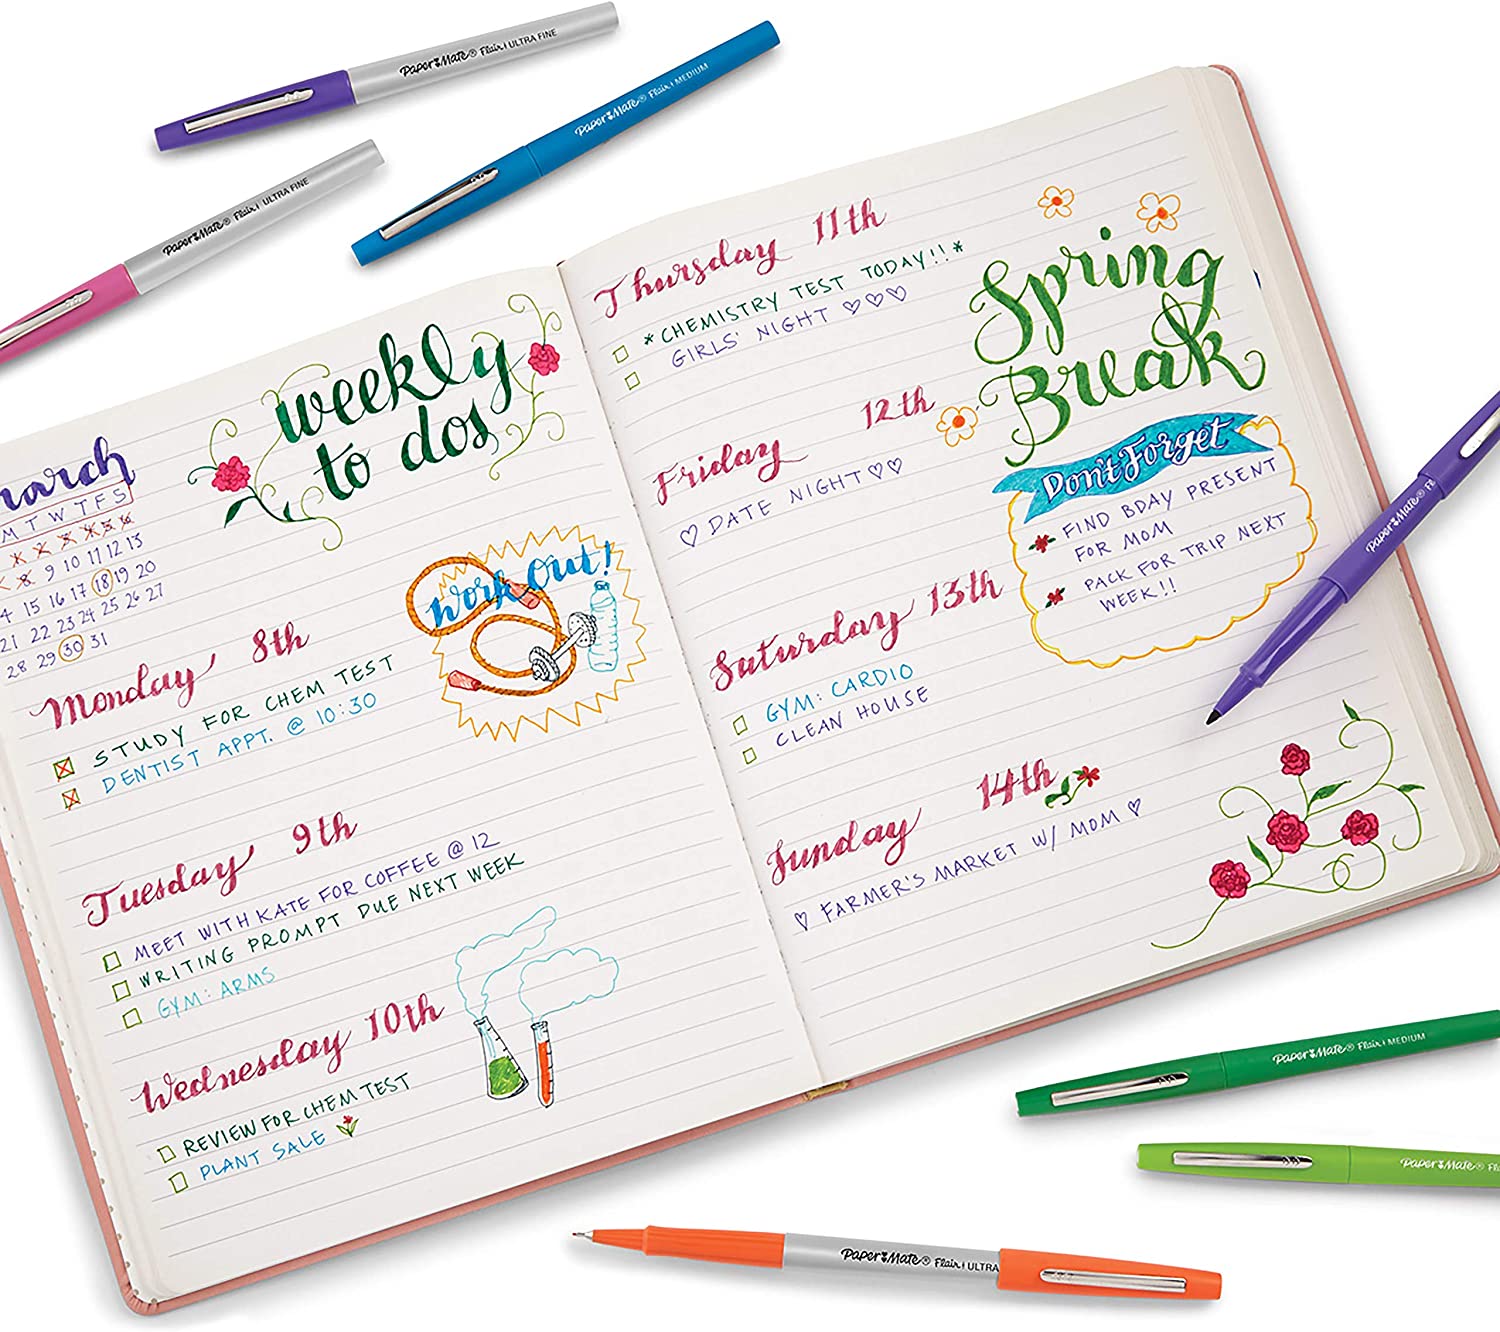 Paper Mate® Flair | ULTRA FINE
Paper Mate® Flair | MEDIUM
Paper Mate® Flair | ULTRA FINE
weekly
to dos
arch
M T W T F S
9 10 11 12 13
4 15 16 17 18 19 20
21 22 23 24 25 26 27
28 29 30 31
Work Out!
Monday 8th
STUDY FOR CHEM TEST
DENTIST APPT. @ 10:30
Tuesday 9th
MEET WITH KATE FOR COFFEE @ 12
WRITING PROMPT DUE NEXT WEEK
GYM: ARMS
Wednesday 10th
REVIEW FOR CHEM TEST
PLANT SALE
Thursday 11th
*CHEMISTRY TEST TODAY!!*
GIRLS' NIGHT ♡♡♡
Friday 12th
♡ DATE NIGHT ♡♡
Saturday 13th
GYM: CARDIO
CLEAN HOUSE
Sunday 14th
♡ FARMER'S MARKET W/ MOM ♡
Spring
Break
Don't Forget
FIND BDAY PRESENT
FOR MOM
PACK FOR TRIP NEXT
WEEK!!
Paper Mate®
Paper Mate® Flair | MEDIUM
Paper Mate® Flair
Paper Mate® Flair | ULTRA